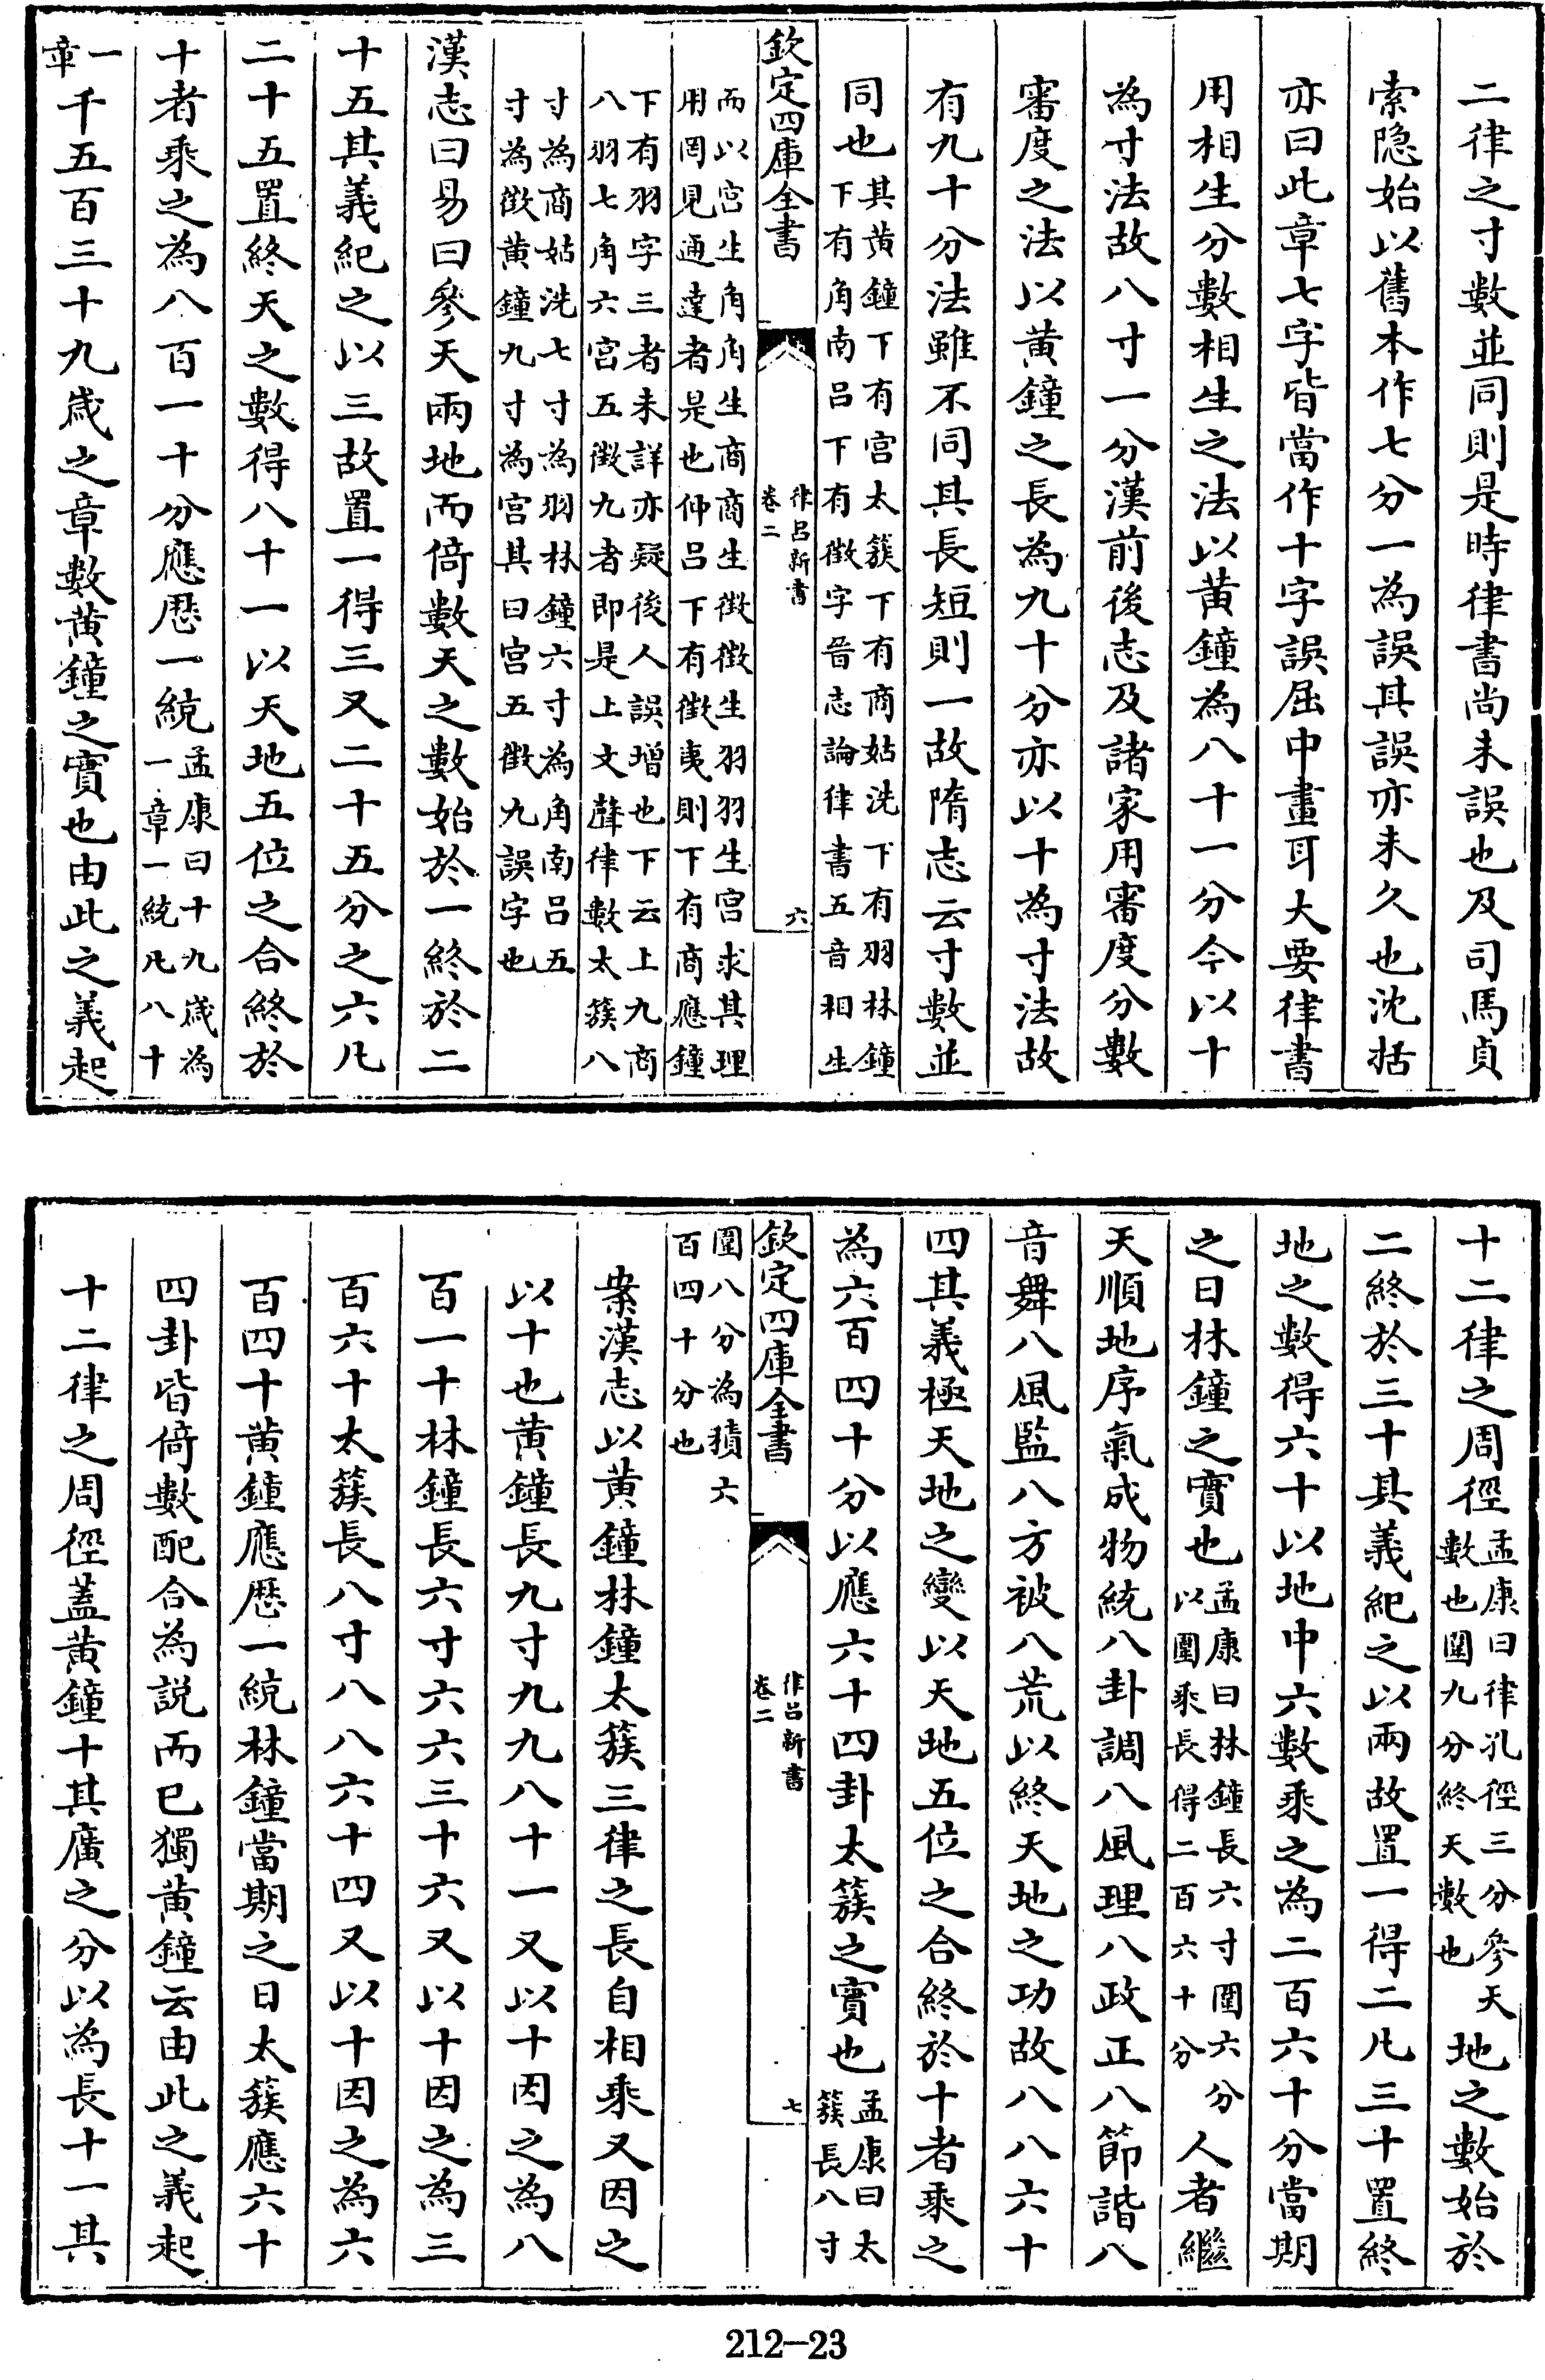 二律之寸數並同則是時律書尚未誤也及司馬貞
索隐始以舊本作七分一為誤其誤亦未久也沈括
亦曰此章七字皆當作十字誤屈中畫耳大要律書
用相生分數相生之法以黄鐘為八十一分今以十
為寸法故八寸一分漢前後志及諸家用審度分數
審度之法以黄鐘之長為九十分亦以十為寸法故
有九十分法雖不同其長短則一故隋志云寸數並
同也其黄鐘下有宫太簇下有商姑洗下有羽林鐘
下有角南吕下有徵字晉志論律書五音相生
欽定四庫全書
律吕新書
卷二
六
而以宫生角角生商商生徵徵生羽羽生宫求其理
用罔見通達者是也仲吕下有徵夷則下有商應鐘
下有羽字三者未詳亦疑後人誤增也下云上九商
八羽七角六宫五徵九者即是上文聲律數太簇八
寸為商姑洗七寸為羽林鐘六寸為角南吕五
寸為徵黄鐘九寸為宫其曰宫五徵九誤字也
漢志曰易曰參天兩地而倚數天之數始於一終於二
十五其義紀之以三故置一得三又二十五分之六凡
二十五置終天之數得八十一以天地五位之合終於
十者乘之為八百一十分應厯一統孟康曰十九歲為
一章一統凡八十
一
章
千五百三十九歲之章數黄鐘之實也由此之義起
十二律之周徑孟康曰律孔徑三分參天
數也圍九分終天數也
地之數始於
二終於三十其義紀之以兩故置一得二凡三十置終
地之數得六十以地中六數乘之為二百六十分當期
之日林鐘之實也孟康曰林鐘長六寸圍六分
以圍乘長得二百六十分
人者繼
天順地序氣成物統八卦調八風理八政正八節諧八
音舞八風監八方被八荒以終天地之功故八八六十
四其義極天地之變以天地五位之合終於十者乘之
為六百四十分以應六十四卦太簇之實也孟康曰太
簇長八寸
欽定四庫全書
律吕新書
卷二
七
圍八分為積六
百四十分也
案漢志以黄鐘林鐘太簇三律之長自相乘又因之
以十也黄鐘長九寸九九八十一又以十因之為八
百一十林鐘長六寸六六三十六又以十因之為三
百六十太簇長八寸八八六十四又以十因之為六
百四十黄鐘應厯一統林鐘當期之日太簇應六十
四卦皆倚數配合為説而已獨黄鐘云由此之義起
十二律之周徑蓋黄鐘十其廣之分以為長十一其
212-23